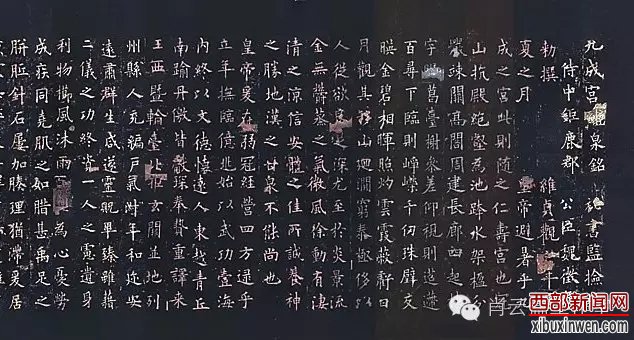 九成宮醴泉銘 秘書監檢
侍中鉅鹿郡公臣魏徵
勅撰 維貞觀
夏之月 皇帝避暑乎
成之宮此則隨之仁壽宮也
山抗殿絶壑為池跨水架楹分
巖竦闕高閣周建長廊四起
宇 葛臺榭參差仰視則迢遰
百尋下臨則崢嶸千仞珠璧交
暎金碧相暉照灼雲霞蔽虧日
月觀其移山迴澗窮泰極侈以
人從欲良足深尤至於炎景流
金無鬱蒸之氣微風徐動有淒
清之涼信安體之佳所誠養神
之勝地漢之甘泉不能尚也
皇帝爰在弱冠經營四方逮乎
立年撫臨億兆始以武功壹海
內終以文德懷遠人東越青丘
南踰丹儌皆獻琛奉贄重譯來
王西暨輪臺北拒玄闕並地列
州縣人充編戶氣淑年和迩安
遠肅群生咸遂靈貺畢臻雖藉
二儀之功終資一人之慮遺身
利物櫛風沐雨 為心憂勞
成疾同堯肌之如腊甚禹足之
胼胝針石屢加腠理猶滯爰居
西部新闻网
xibuxinwen.com